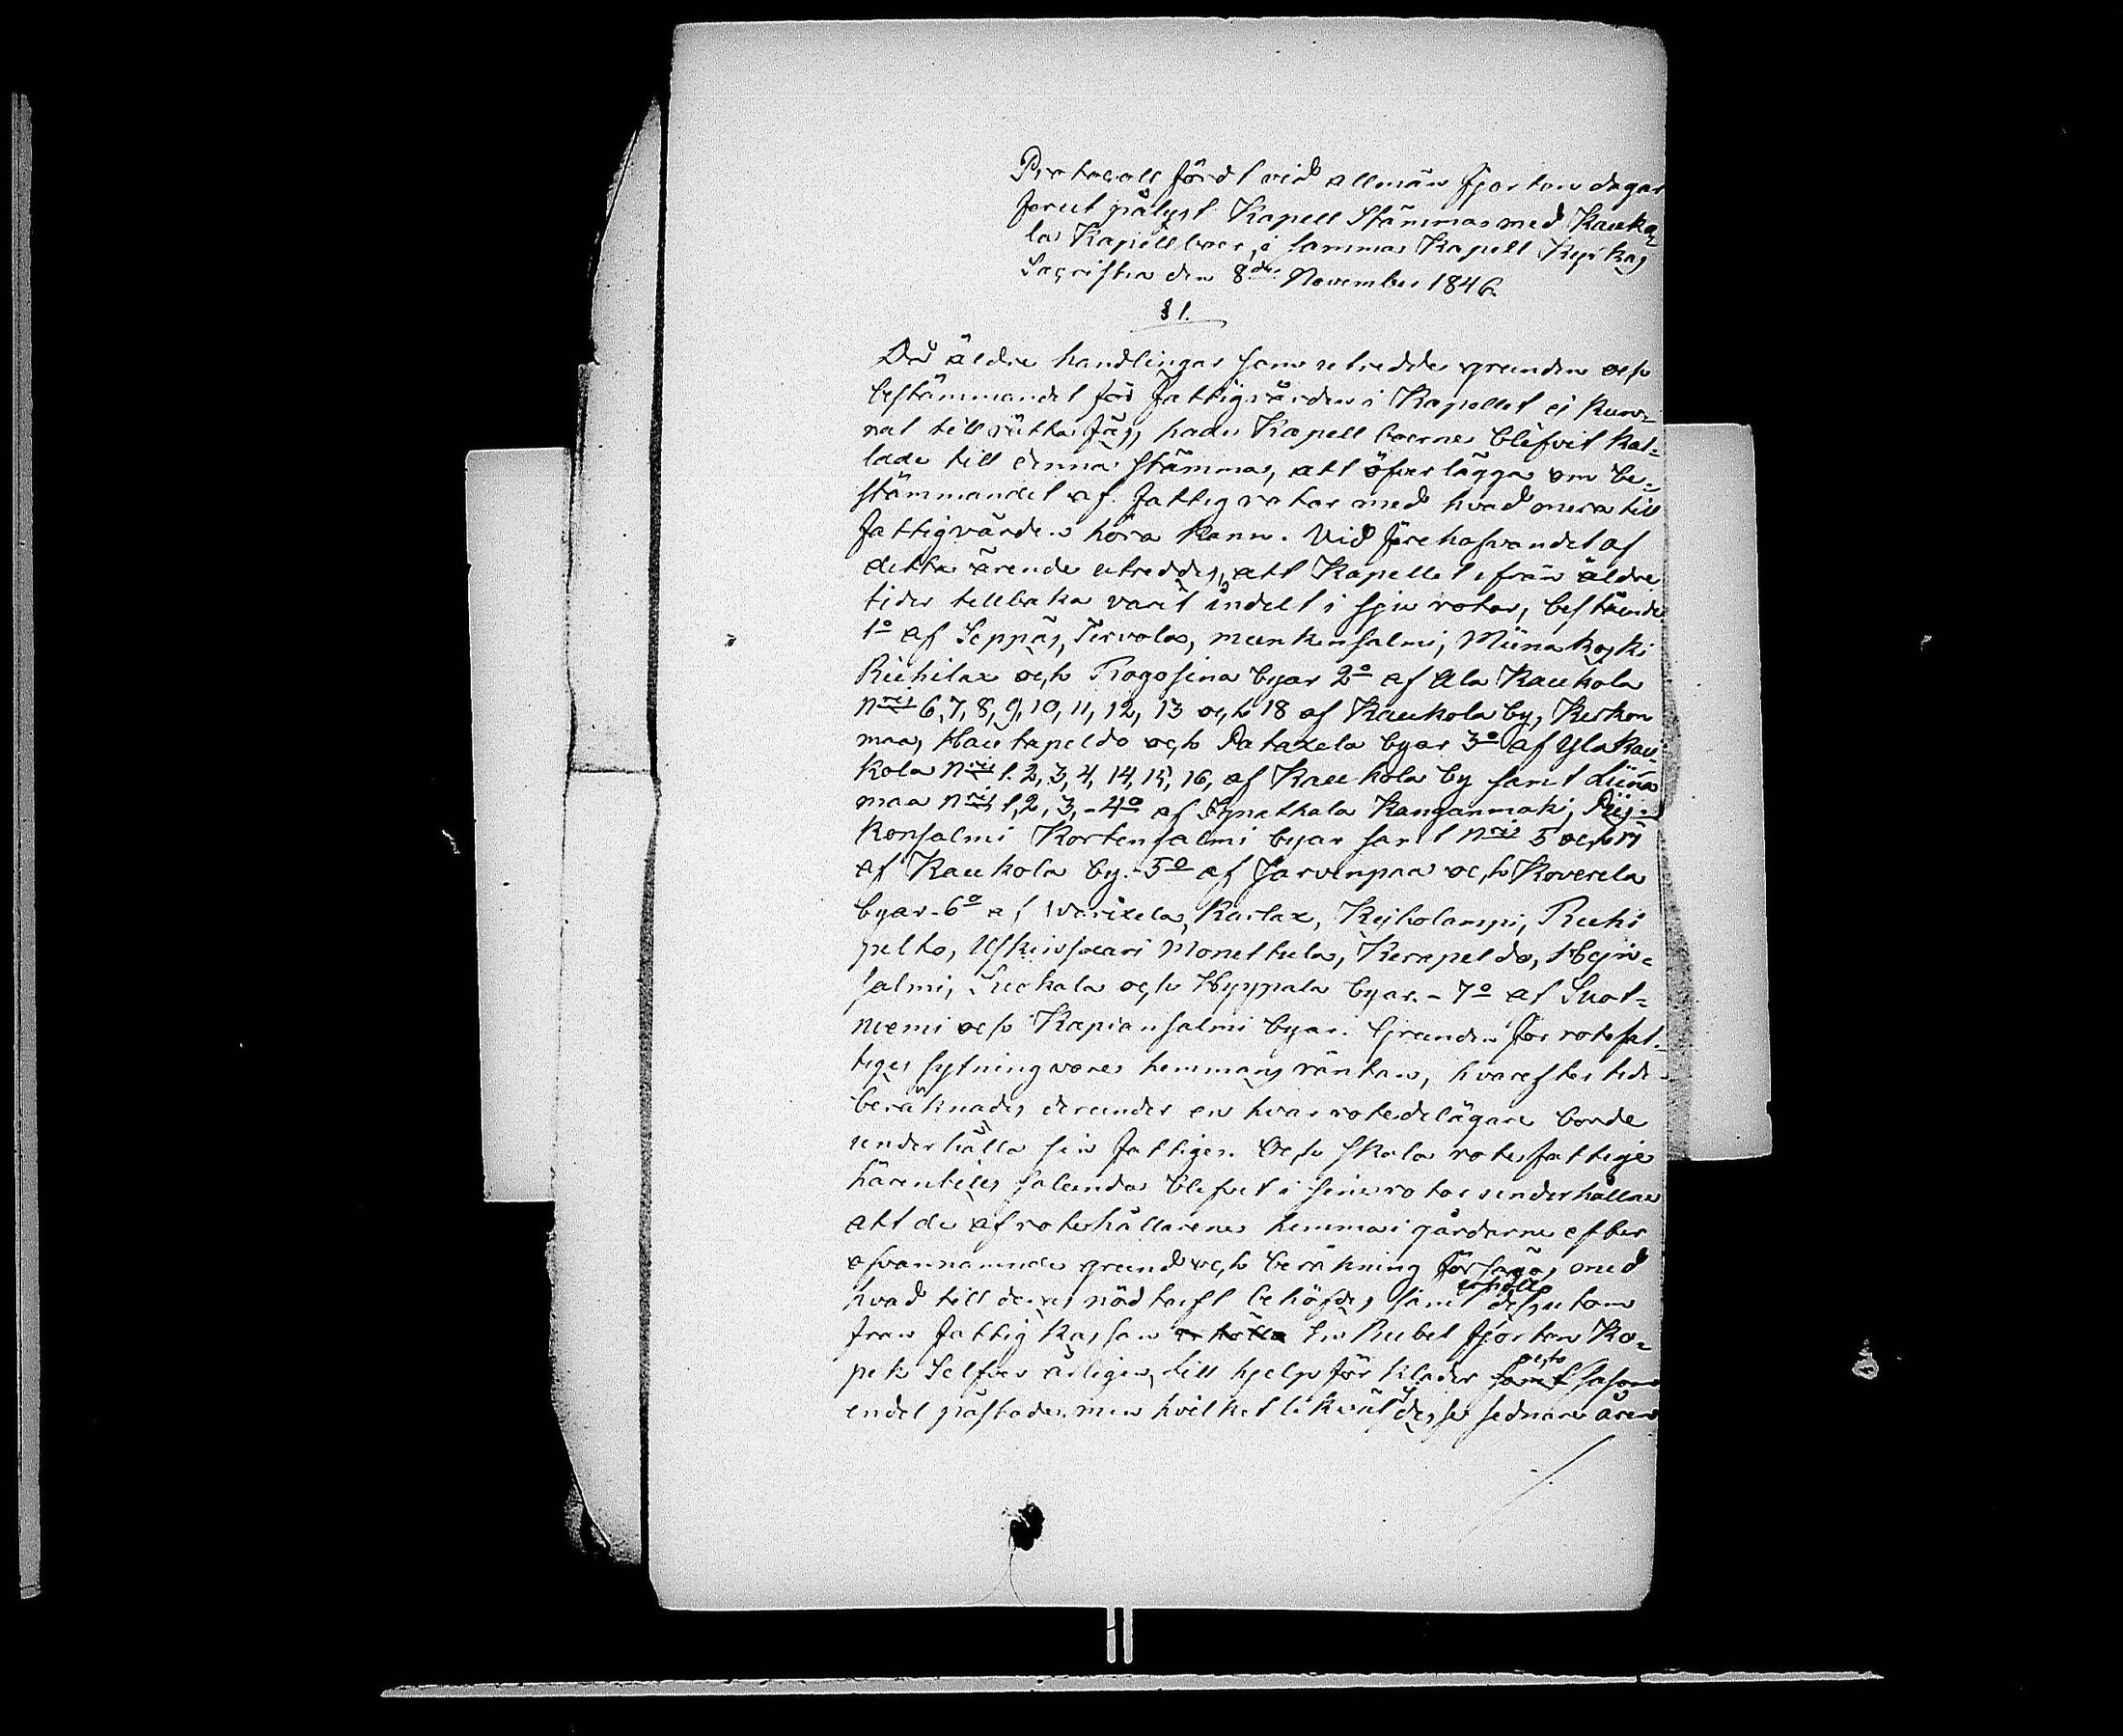 Protocoll fördt vid allmän fjorton dagar
förut pålyst Kapell Stämma med Kauko-
la Kapellboer, i samma Kapell Kyrkas
Sacristia den 8de November 1846.
§ 1.
Då äldre handlingar som utredde grunden och
bestämmandet för Fattigvården i Kapellet ej kun-
nat till rätta fås, hade Kapellboerne blefvit kal-
lade till denna stämma, att öfverlägga om be-
stämmandet af fattig rotar med hvad mera till
fattigvården höra kann. Vid förehafvandet af
detta ärende utreddes, att Kapellet ifrån äldre
tider tillbaka varit indelt i sju rotar, bestående
1o af Seppäs, Tervola, Munkinsalmi, Miinakoski
Riihilax och Rogosina byar 2o af Ala Kaukola
Nris 6, 7, 8, 9, 10, 11, 12, 13 och 18 af Kaukola by, Kerkon
maa, Hautapeldo och Pataxela byar 3o af Yla Kau-
kola Nris 1. 2, 3, 4, 14, 15, 16, af Kaukola by samt Liina
maa Nris 1, 2, 3, - 4o af Kangasmaki,
Konsalmi Kortensalmi byar samt Nris 5 och 17
af Kaukola by. - 5o af Jarvenpaa och Koverela
byar - 6o af Warixela, Karlax, Kejholampi, Ruhi
pelto, Monethula, Kerapeldo, Hejn-
salmi, Suokala och Hyppala byar. - 7o af Suot-
niemi och Kapiansalmi byar. Grunden för rotefat-
tiges sytning vore hemmans räntan, hvarefter tiden
beräknades derunder en hvar rotedelägare borde
underhålla sin fattiger. Och skola rotefattige
härintills salunda blifvet i sine rotar underhållne
att de af rotehållarene hemma i gårdarne efter
ofvannämnde grund och beräkning försågos med
hvad till deras nödtorft behöfdes samt erhölla dessutom
från fattig kassan erhölla En Rubel fjorton Ko-
pek Silfver årligen, till hjelp för kläder samt och såsom
endel påstode, men hvilket likväl desse sednare åren